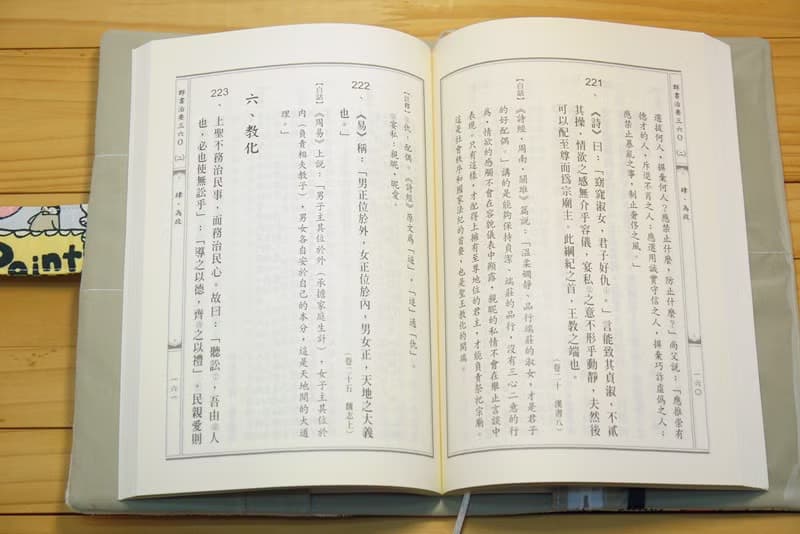 群書治要三六〇(二)
肆・為政
一六〇
選拔何人?摒棄何人?應禁止什麼,防止什麼?」尚父說:「應推崇有
德才的人,斥逐不肖之人;應選用誠實守信之人,摒棄巧詐虛偽之人;
應禁止暴亂之事,制止奢侈之風。」
221、《詩》曰:「窈窕淑女,君子好仇①。」言能致其貞淑,不貳
其操,情欲之感無介乎容儀,宴私②之意不形乎動靜,夫然後
可以配至尊而為宗廟主。此綱紀之首,王教之端也。
(卷二十 漢書八)
【白話】《詩經・周南・關雎》篇說:「溫柔嫻靜、品行端莊的淑女,才是君子
的好配偶。」講的是能夠保持貞潔、端莊的品行,沒有三心二意的行
為,情欲的感觸不會在容貌儀表中顯露,親昵的私情不會在舉止言談中
表現。只有這樣,才配得上擁有至尊地位的君主,才能負責祭祀宗廟。
這是社會秩序和國家法紀的首要,也是聖王教化的開端。
【註釋】①仇:配偶。《詩經》原文為「逑」。「逑」通「仇」。
②宴私:親昵,昵愛。
222、《易》稱:「男正位於外,女正位於內,男女正,天地之大義
也。」
(卷二十五 魏志上)
【白話】《周易》上說:「男子主其位於外(承擔家庭生計),女子主其位於
內(負責相夫教子),男女各自安於自己的本分,這是天地間的大道
理。」
六、教化
223、上聖不務治民事,而務治民心。故曰:「聽訟①,吾由②人
也,必也使無訟乎」;「導之以德,齊③之以禮」。民親愛則
群書治要三六〇(二)
肆・為政
一六一
Point